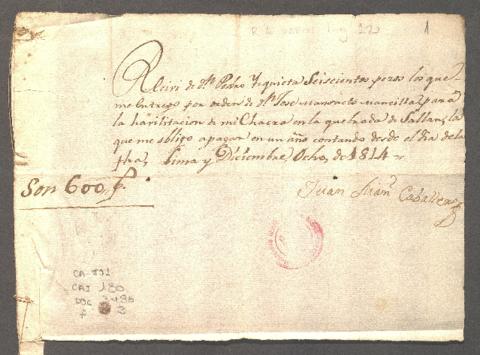 1
Reciví de Dn. Pedro Yquieta Seiscientos pesos los que
me entregó por orden de Dn. Jose Mancilla, para
la havilitacion de mi Chacra en la quebrada de
que me obligo a pagar en un año contando desde el dia de la
fha, Lima y Diciembre Ocho, de 1814
Son 600 p.
Juan Man.l Caballero
CA-
CAJ 180
DOC
f 3